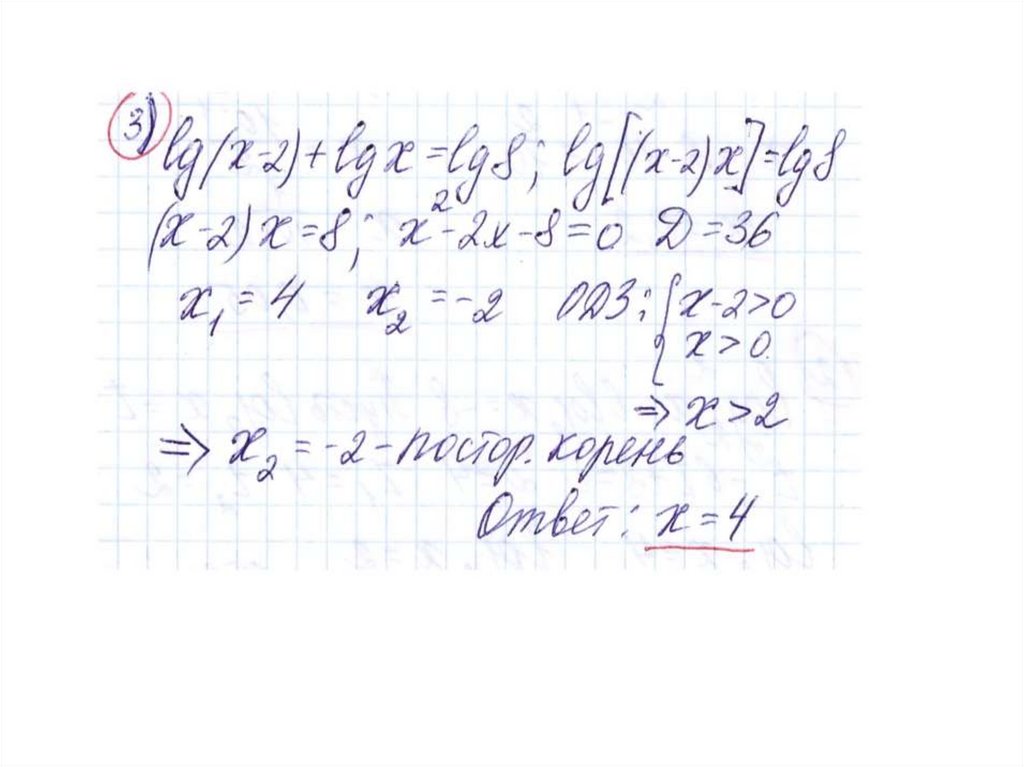 3) lg(x-2)+lgx=lg8; lg[(x-2)x]=lg8
(x-2)x=8; x²-2x-8=0 D=36
x₁=4 x₂=-2 ОДЗ: { x-2>0
x>0
=> x>2
=> x₂=-2-постор. корень
Ответ: x=4